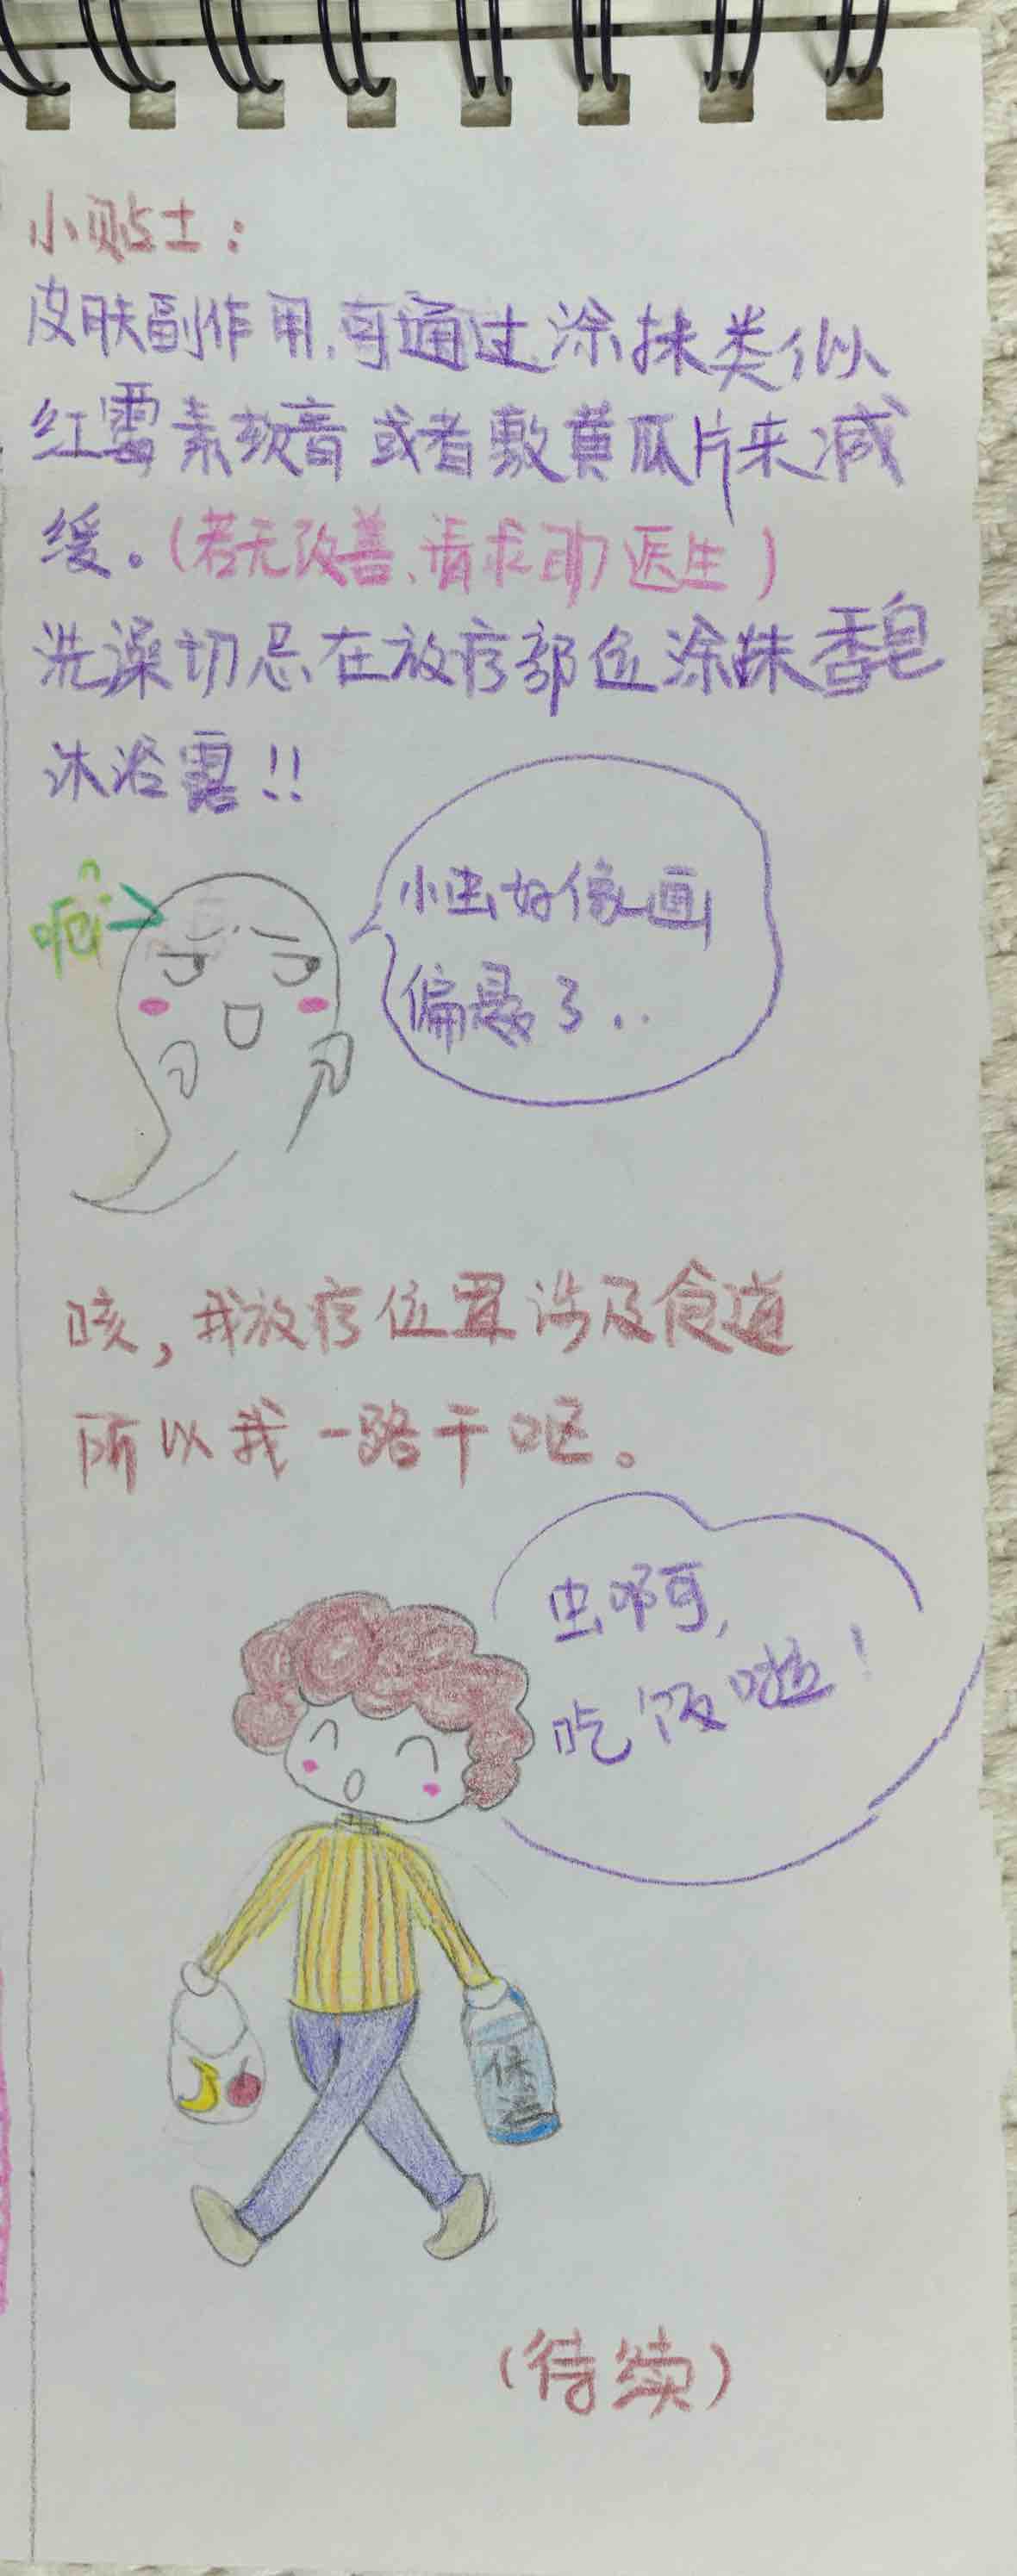 小贴士：
皮肤副作用，可通过涂抹类似
红霉素软膏或者敷黄瓜片来减
缓。（若无改善、请求助医生）
洗澡切忌在放疗部位涂抹香皂
沐浴露！！
呃
小虫好像画
偏题了..
咳，我放疗位置涉及食道
所以我一路干呕。
虫啊，
吃饭啦！
保温
（待续）